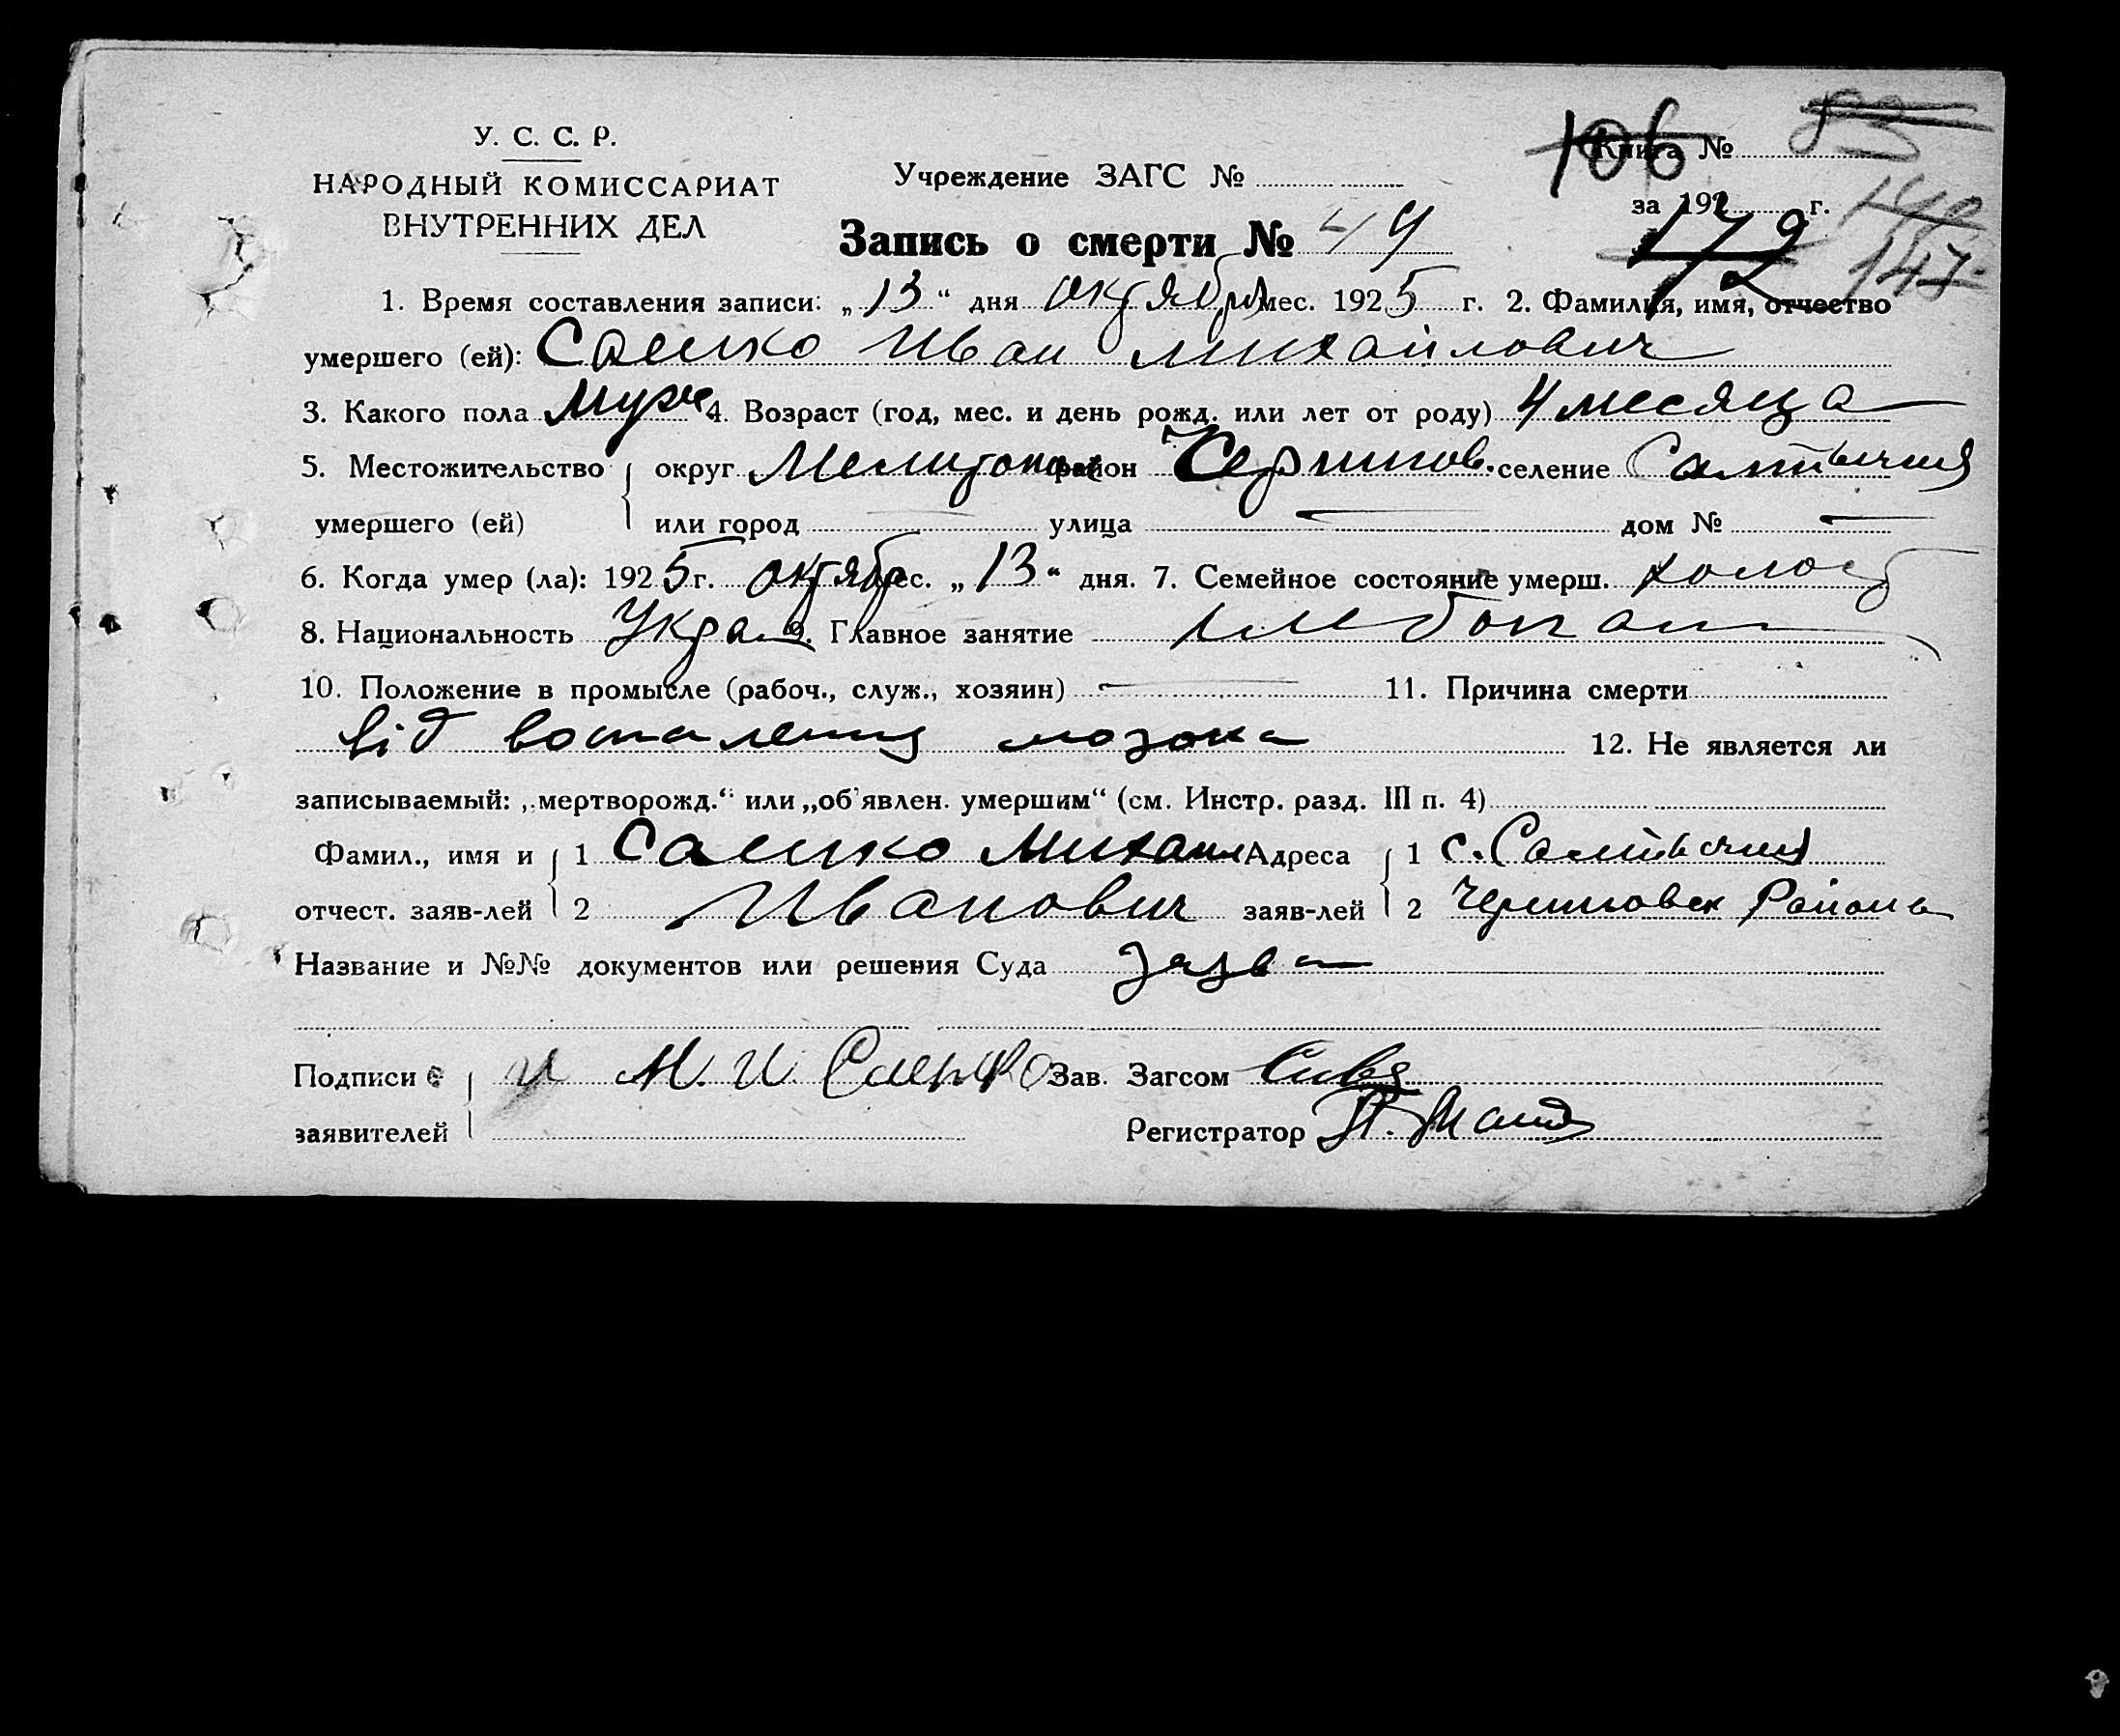 У. С. С. Р.
НАРОДНЫЙ КОМИССАРИАТ
ВНУТРЕННИХ ДЕЛ
Учреждение ЗАГС №
106
Книга №
за 192 г.
172
147
Запись о смерти № 44
1. Время составления записи: „13“ дня октября мес. 1925 г. 2. Фамилия, имя, отчество
умершего (ей): Сашко Иван Михайлович
3. Какого пола Муж 4. Возраст (год, мес. и день рожд. или лет от роду) 4 месяца
5. Местожительство округ Мелитоп район Чернигов. селение Салтычия
умершего (ей) или город — улица — дом № —
6. Когда умер (ла): 1925 г. октябр мес. „13“ дня. 7. Семейное состояние умерш. холост
8. Национальность Украин 9. Главное занятие хлебопаш
10. Положение в промысле (рабоч., служ., хозяин) — 11. Причина смерти
від воспаления мозока
12. Не является ли
записываемый: „мертворожд.“ или „об'явлен. умершим“ (см. Инстр. разд. III п. 4)
Фамил., имя и 1 Сашко Михаил Адреса 1 с. Салтычия
отчест. заяв-лей 2 Иванович заяв-лей 2 Черниговск Района
Название и №№ документов или решения Суда заява
Подписи М. И. Сашко Зав. Загсом
заявителей Регистратор